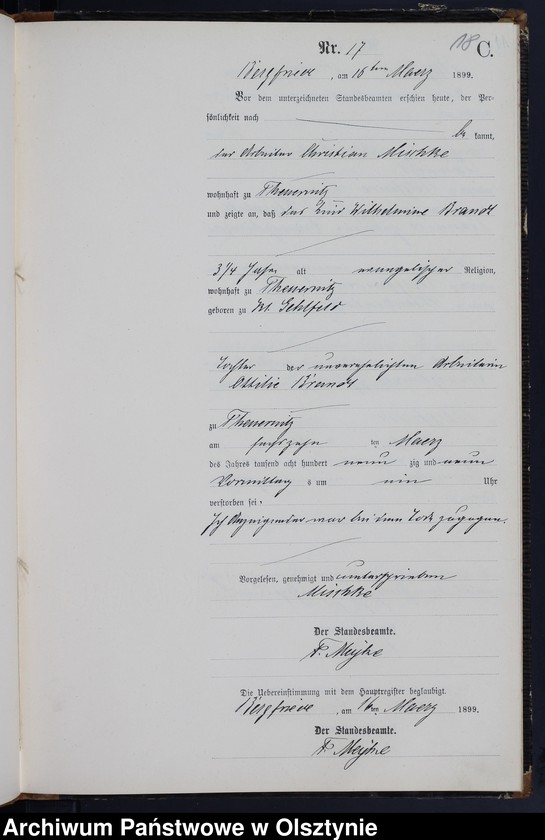 18
Nr. 17 C.
Bergfriede, am 16ten Maerz 1899.
Vor dem unterzeichneten Standesbeamten erschien heute, der Per-
sönlichkeit nach
be kannt,
der Arbeiter Christian Mischke
wohnhaft zu Theuernitz
und zeigte an, daß das Kind Wilhelmine Brandt
3 1/4 Jahre alt evangelischer Religion,
wohnhaft zu Theuernitz
geboren zu Kl. Gehlfeld
Tochter der unverehelichten Arbeiterin
Ottilie Brandt
zu Theuernitz
am sechszehn ten Maerz
des Jahres tausend acht hundert neun zig und neun
Vormittag s um ein Uhr
verstorben sei.
Ich Anzeigender war bei dem Tode zugegen.
Vorgelesen, genehmigt und unterschrieben
Mischke
Der Standesbeamte.
Die Uebereinstimmung mit dem Hauptregister beglaubigt.
Bergfriede, am 16ten Maerz 1899.
Der Standesbeamte.
Archiwum Państwowe w Olsztynie